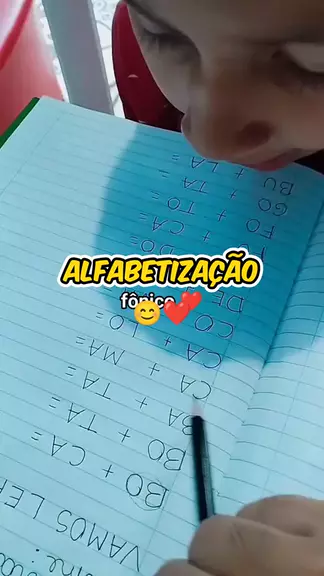 ALFABETIZAÇÃO
fônico
VAMOS LER
BO + CA=
BO + TA=
BA + TA=
CA + MA=
CA + LO=
CO
DE
DO=
+ CA=
FO + TO=
GO + TA=
BU + LA=